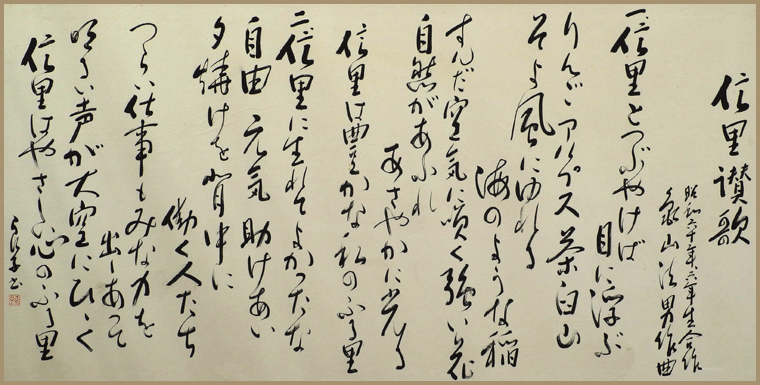 信里讃歌
昭和六十年六年生合作
亀山法男作曲
一、信里とつぶやけば
目に浮ぶ
りんごアルプス茶臼山
そよ風にゆれる
海のような稲
すんだ空気に咲く強い花
自然があふれ
あざやかに光る
信里は豊かな私のふる里
二、信里に生れてよかったな
自由 元気 助けあい
夕焼けを背中に
働く人たち
つらい仕事もみな力を
出しあって
明るい声が大空にひゞく
信里はやさしい心のふる里